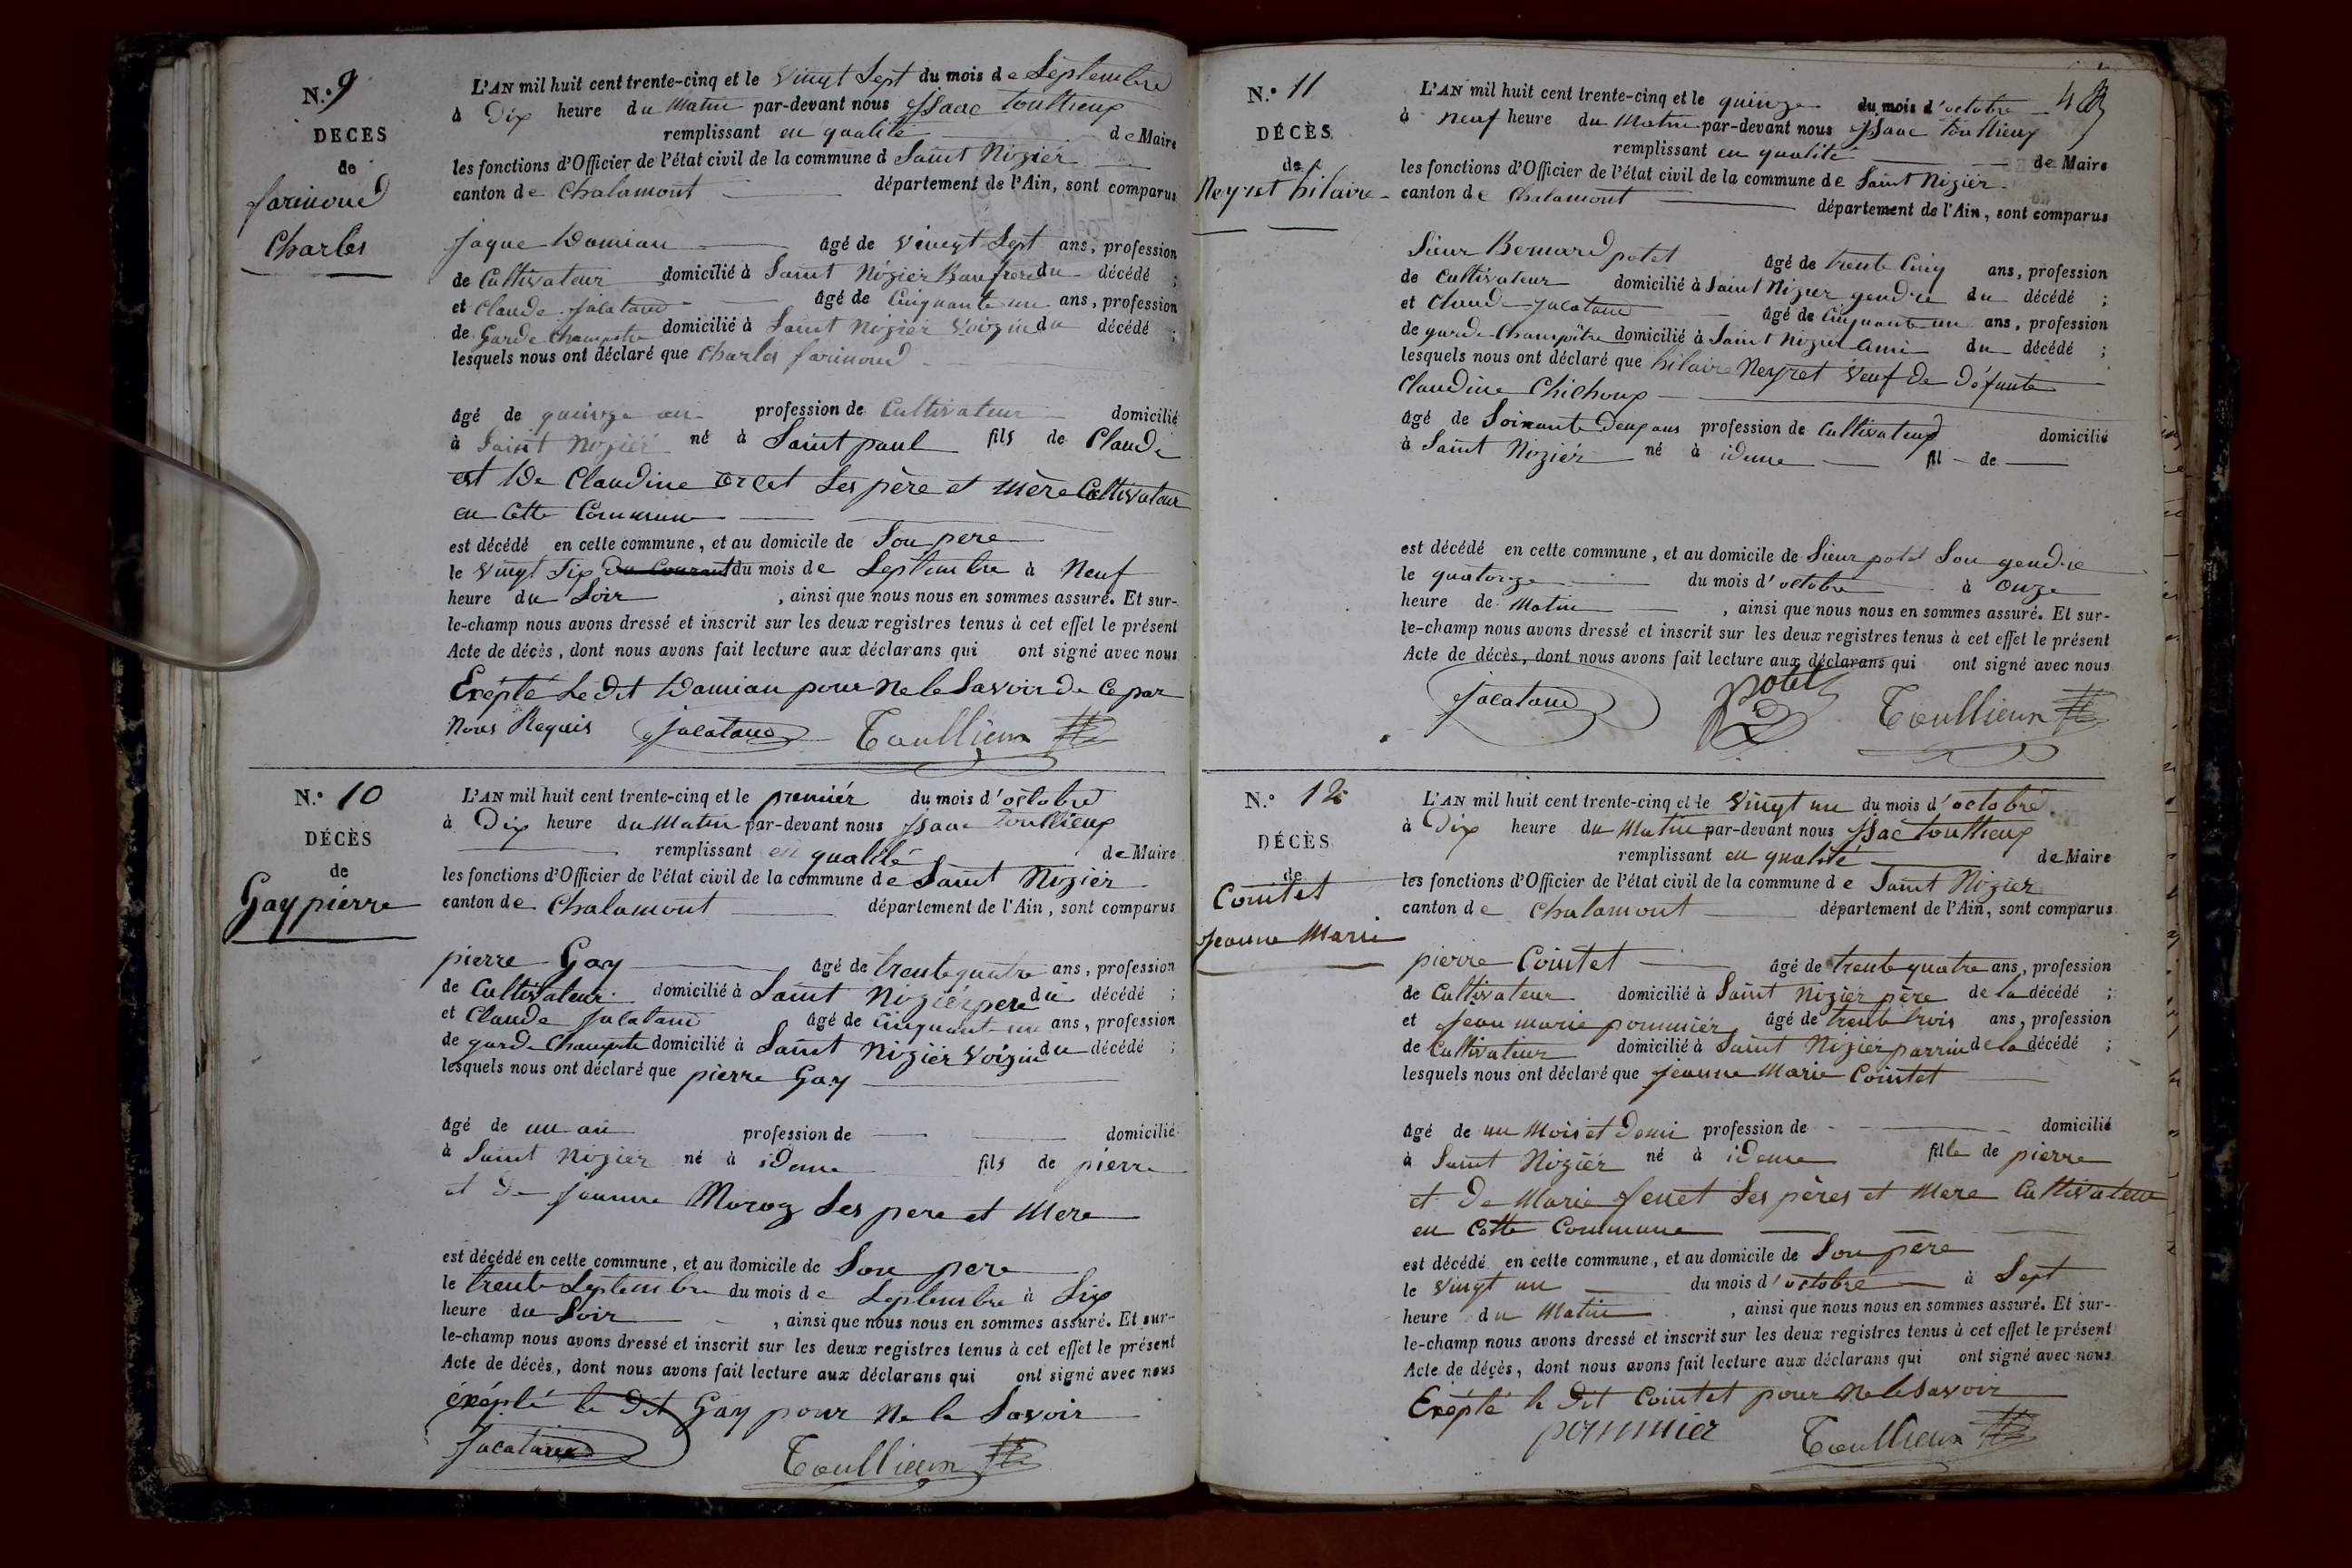 N.° 9
DECES
de
farinoud
Charles
L'AN mil huit cent trente-cinq et le vingt Sept du mois de Septembre
à Dix heure du Matin par-devant nous Isaac toullieux
remplissant en qualité de Maire
les fonctions d'Officier de l'état civil de la commune d Saint Nizier
canton de Chalamont département de l'Ain, sont comparus
Jaque Damian âgé de vingt Sept ans, profession
de Cultivateur domicilié à Saint Nizier Baufrere du décédé ;
et Claude Jacataud âgé de Cinquante un ans, profession
de Garde Champetre domicilié à Saint Nizier Voizin du décédé ;
lesquels nous ont déclaré que Charles farinoud
âgé de quinze an profession de Cultivateur domicilié
à Saint Nizier né à Saint paul fils de Claude
est De Claudine Ses père et mère Cultivateur
en Cette Commune
est décédé en cette commune, et au domicile de Son pere
le vingt Six du Courant du mois de Septembre à Neuf
heure du Soir , ainsi que nous nous en sommes assuré. Et sur-
le-champ nous avons dressé et inscrit sur les deux registres tenus à cet effet le présent
Acte de décès, dont nous avons fait lecture aux déclarans qui ont signé avec nous
Exépté Le Dit Damian pour ne le Savoir De Ce par
Nous Requis Jacataud Toullieux
N.° 10
DÉCÈS
de
Gay pierre
L'AN mil huit cent trente-cinq et le premiér du mois d'octobre
à Dix heure du Matin par-devant nous Isaac toullieux
remplissant en qualité de Maire
les fonctions d'Officier de l'état civil de la commune de Saint Nizier
canton de Chalamont département de l'Ain, sont comparus
pierre Gay âgé de trente quatre ans, profession
de Cultivateur domicilié à Saint Niziér pere du décédé ;
et Claude Jacataud âgé de cinquante un ans, profession
de garde Champetre domicilié à Saint Niziér Voizin du décédé ;
lesquels nous ont déclaré que pierre Gay
âgé de un an profession de domicilié
à Saint Nizier né à idem fils de pierre
et De Jeanne Ses pere et Mere
est décédé en cette commune, et au domicile de Son pere
le trente Septembre du mois de Septembre à Six
heure du Soir , ainsi que nous nous en sommes assuré. Et sur-
le-champ nous avons dressé et inscrit sur les deux registres tenus à cet effet le présent
Acte de décès, dont nous avons fait lecture aux déclarans qui ont signé avec nous
éxépté le Dit Gay pour Ne le Savoir
Jacataud Toullieux
N.° 11
DÉCÈS
de
Neyret hilaire
L'AN mil huit cent trente-cinq et le quinze du mois d'octobre
à neuf heure du Matin par-devant nous Isaac toullieux
remplissant en qualité de Maire
les fonctions d'Officier de l'état civil de la commune de Saint Nizier
canton de Chalamont département de l'Ain, sont comparus
Sieur Bernard potet âgé de trente Cinq ans, profession
de Cultivateur domicilié à Saint Nizier gendre du décédé ;
et Claude Jacataud âgé de Cinquante un ans, profession
de garde Champêtre domicilié à Saint Nizier Ami du décédé ;
lesquels nous ont déclaré que hilaire Neyret Veuf De Défunte
Claudine Chichoux
âgé de Soixante Deux ans profession de Cultivateur domicilié
à Saint Niziér né à idem fil de
est décédé en cette commune, et au domicile de Sieur potet Son gendre
le quatorze du mois d'octobre à Onze
heure de Matin , ainsi que nous nous en sommes assuré. Et sur-
le-champ nous avons dressé et inscrit sur les deux registres tenus à cet effet le présent
Acte de décès, dont nous avons fait lecture aux déclarans qui ont signé avec nous
Jacataud potet Toullieux
N.° 12
DÉCÈS
de
Cointet
Jeanne Marie
L'AN mil huit cent trente-cinq et le Vingt un du mois d'octobre
à Dix heure du Matin par-devant nous Isac toullieux
remplissant en qualité de Maire
les fonctions d'Officier de l'état civil de la commune de Saint Nizier
canton de Chalamont département de l'Ain, sont comparus
pierre Cointet âgé de trente quatre ans, profession
de Cultivateur domicilié à Saint Nizier père de la décédé ;
et Jean marie pommiér âgé de trente trois ans, profession
de Cultivateur domicilié à Saint Niziér parrin de la décédé ;
lesquels nous ont déclaré que Jeanne Marie Cointet
âgé de un Mois et Demi profession de domicilié
à Saint Niziér né à idem fille de pierre
et De Marie fenet Ses pères et Mere Cultivateur
en Cette Commune
est décédé en cette commune, et au domicile de Son père
le Vingt un du mois d'octobre à Sept
heure du Matin , ainsi que nous nous en sommes assuré. Et sur-
le-champ nous avons dressé et inscrit sur les deux registres tenus à cet effet le présent
Acte de décès, dont nous avons fait lecture aux déclarans qui ont signé avec nous
Exépté le Dit Cointet pour Ne le Savoir
pommier Toullieux